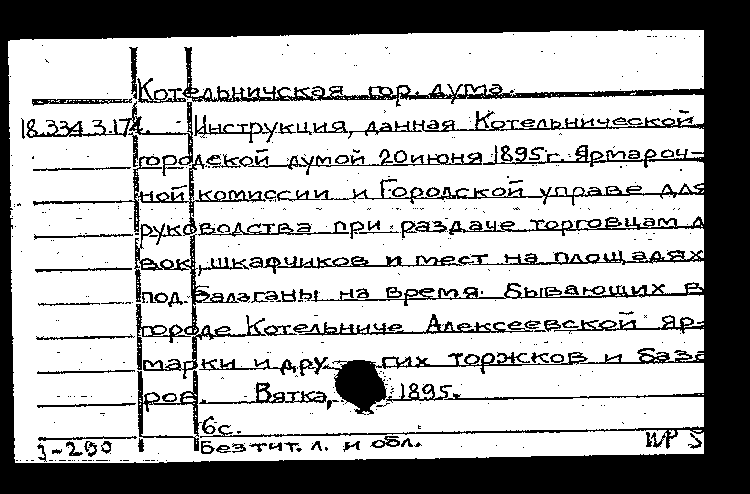 Котельничская гор. дума.
18.334.3.174. Инструкция, данная Котельнической
городской думой 20 июня 1895г. Ярмароч-
ной комиссии и Городской управе для
руководства при раздаче торговцам л
вок, шкафчиков и мест на площадях
под балаганы на время бывающих в
городе Котельниче Алексеевской яр-
марки и дру- гих торжков и база
ров. Вятка, 1895.
6с.
Без тит. л. и обл.
3-290